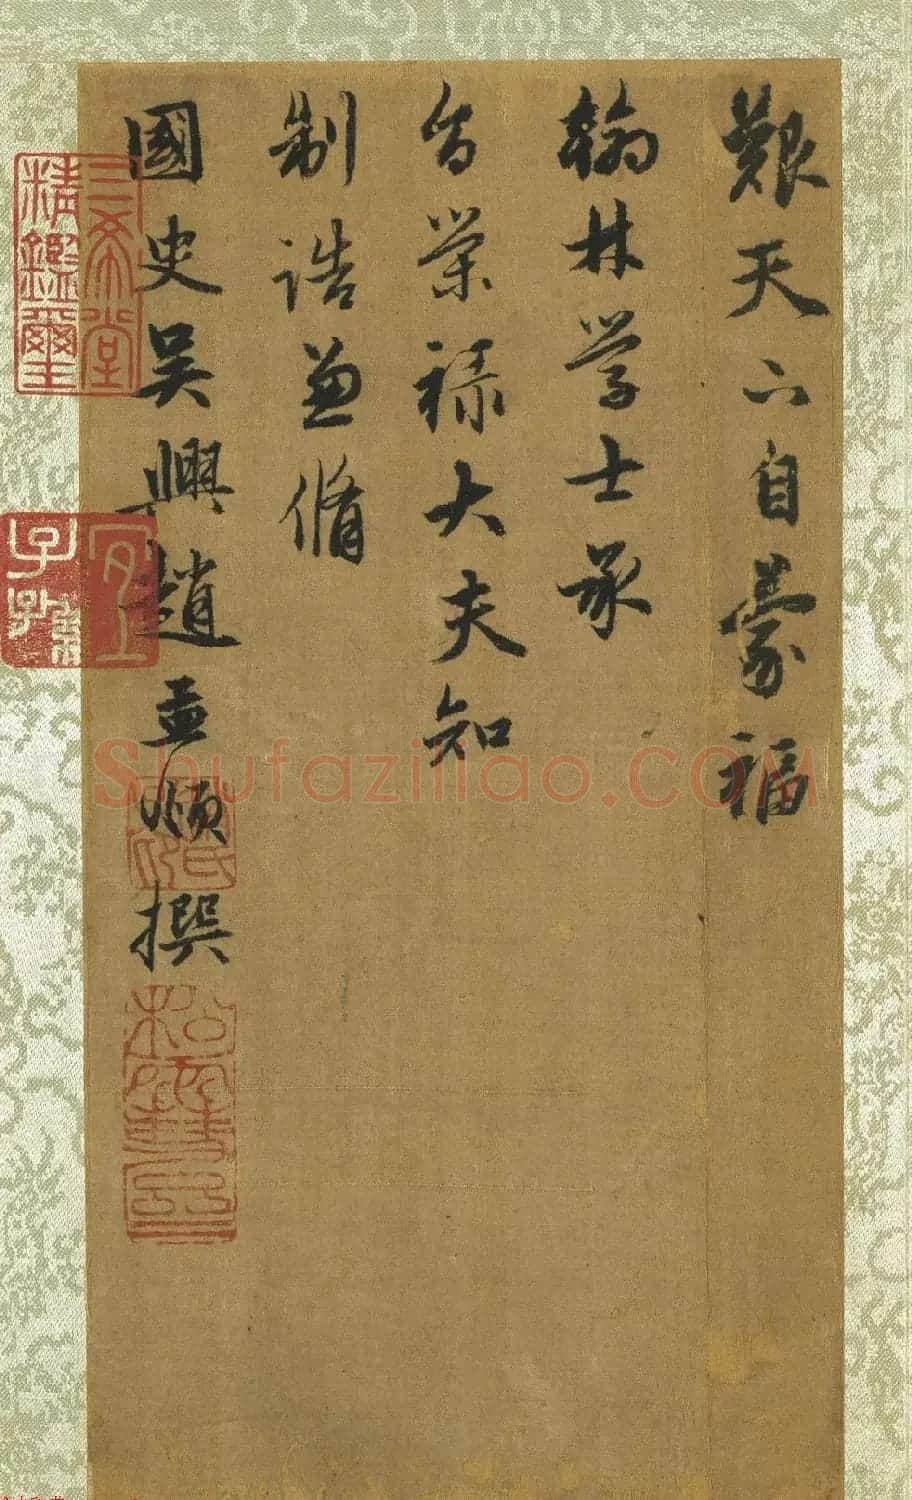 艱天下自蒙福
翰林学士承
旨榮禄大夫知
制誥兼脩
國史吳興趙孟頫撰
三希堂
精鑑璽
宜子孫
Shufaziliao.COM